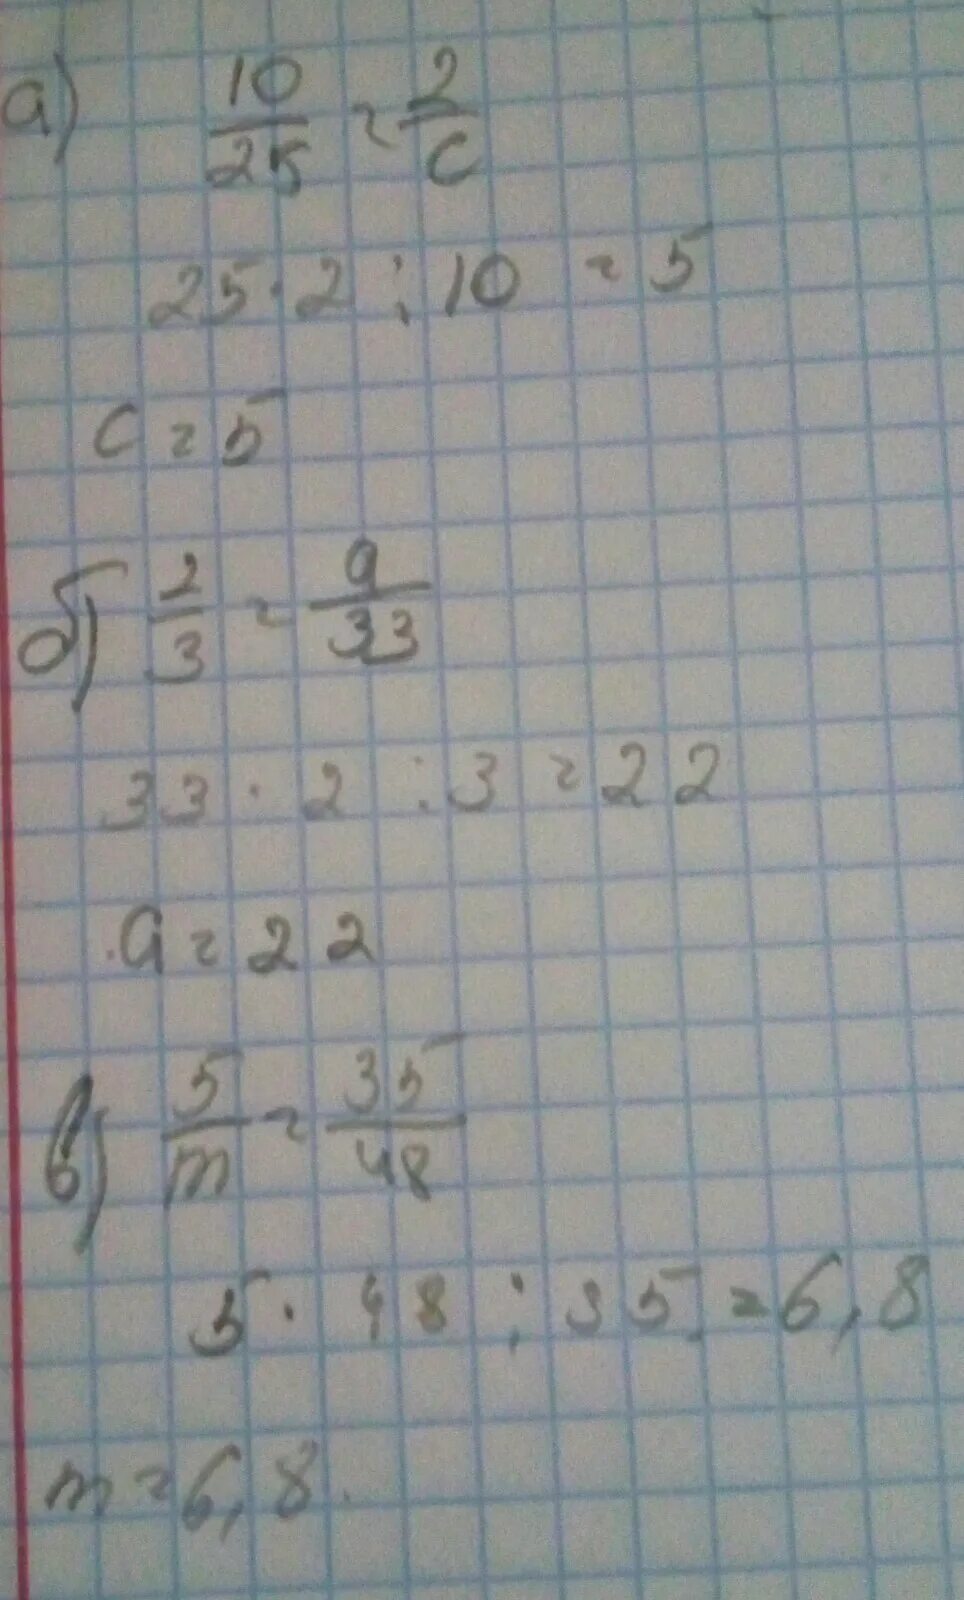 а) 10/25 = 2/c
25 · 2 : 10 = 5
c = 5
б) 2/3 = a/33
33 · 2 : 3 = 22
a = 22
в) 5/m = 35/48
5 · 48 : 35 = 6,8
m = 6,8.